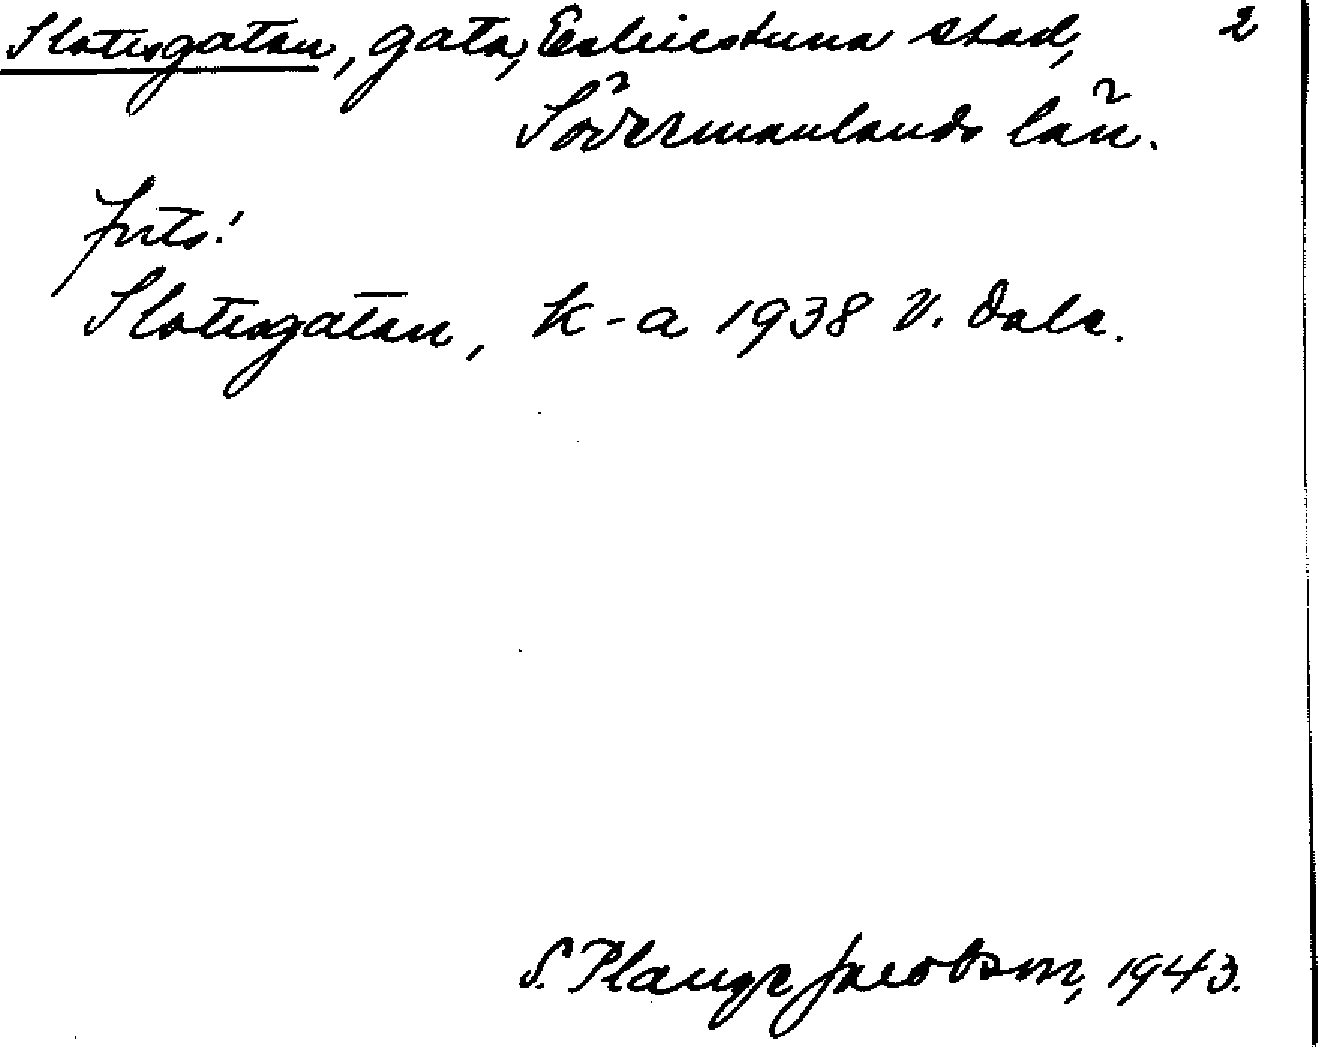 Slottsgatan, gata, Eskilstuna stad, 2
Södermanlands län.
Slottsgatan, k-a 1938 V. Dala.
S. Plange Jacobson, 1943.